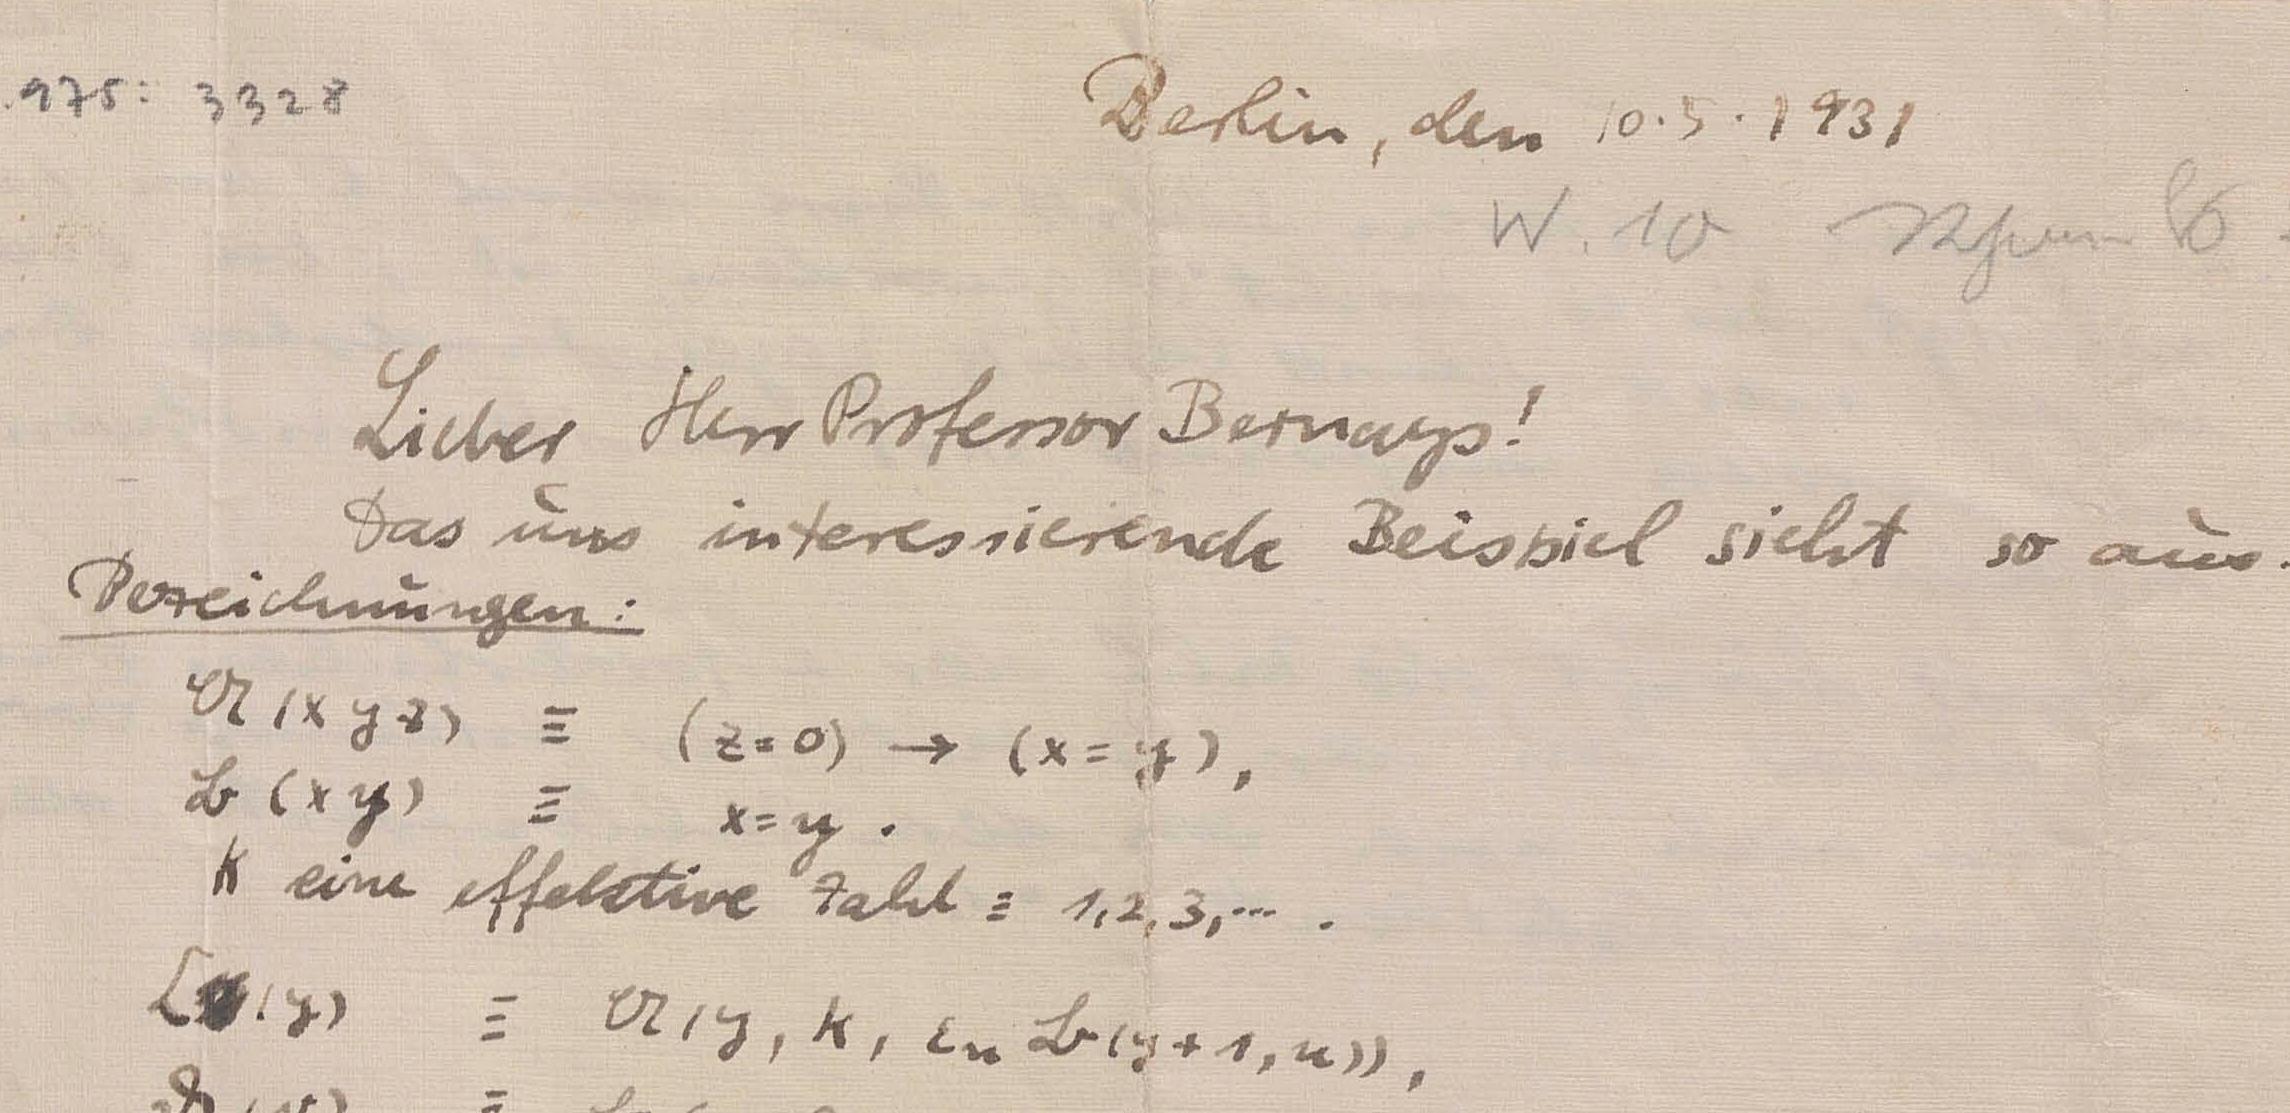 .975: 3328
Berlin, den 10.5.1931
W. 10
Lieber Herr Professor Bernays!
Das uns interessierende Beispiel sieht so aus.
Bezeichnungen:
𝔄(x y z) ≡ (z=0) → (x=y),
𝔅(x y) ≡ x=y.
K eine effektive Zahl ≡ 1,2,3,... .
(y) ≡ 𝔄(y, K, ε_u 𝔅(y+1, u)),